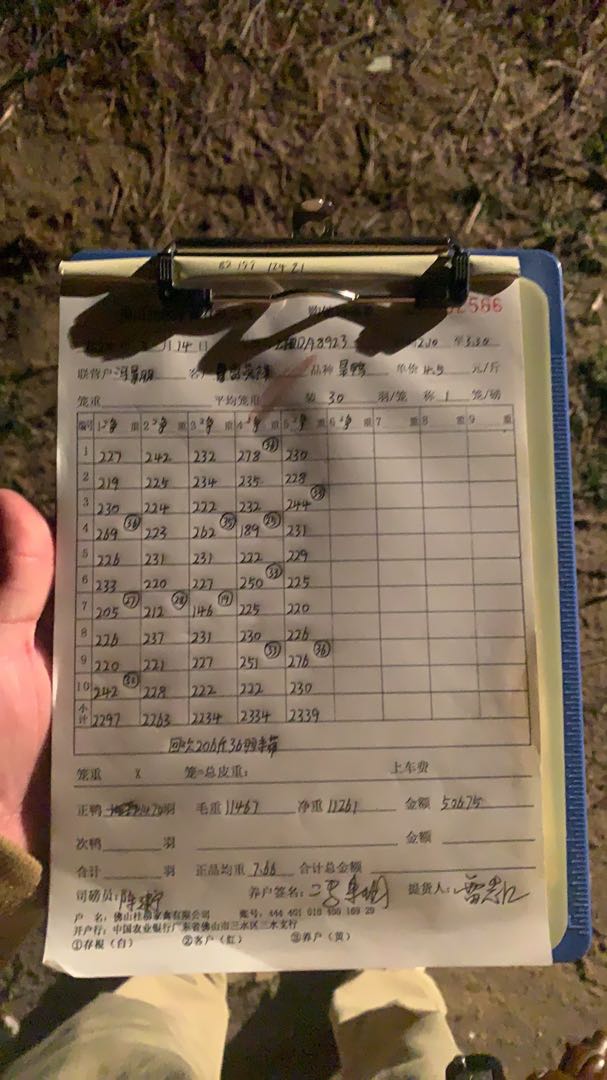 82 197 124 21
586
月14日 2.20 至 3.30
联营户 客户 品种 单价 4.5 元/斤
笼重 平均笼重 装 30 羽/笼 称 1 笼/磅
编号 1 重 2 重 3 重 4 重 5 重 6 重 7 重 8 重 9 重
1 227 242 232 278 (36) 230
2 219 225 234 235 228
3 230 224 222 232 244 (33)
4 269 (36) 223 262 (35) 189 (25) 231
5 226 231 231 222 229
6 233 220 227 250 (33) 225
7 205 (27) 212 (28) 146 (19) 225 220
8 226 237 231 230 226
9 220 221 227 251 (33) 276 (36)
10 242 (32) 228 222 222 230
小计 2297 2263 2234 2334 2339
206斤36羽
笼重 X 笼=总皮重: 上车费
正鸭 1470羽 毛重 11467 净重 11261 金额 50675
次鸭 羽 金额
合计 羽 正品均重 7.66 合计总金额
司磅员: 养户签名: 提货人:
户 名: 佛山 家禽有限公司 账号: 444 401 010 400 169 29
开户行: 中国农业银行广东省佛山市三水区三水支行
①存根(白) ②客户(红) ③养户(黄)